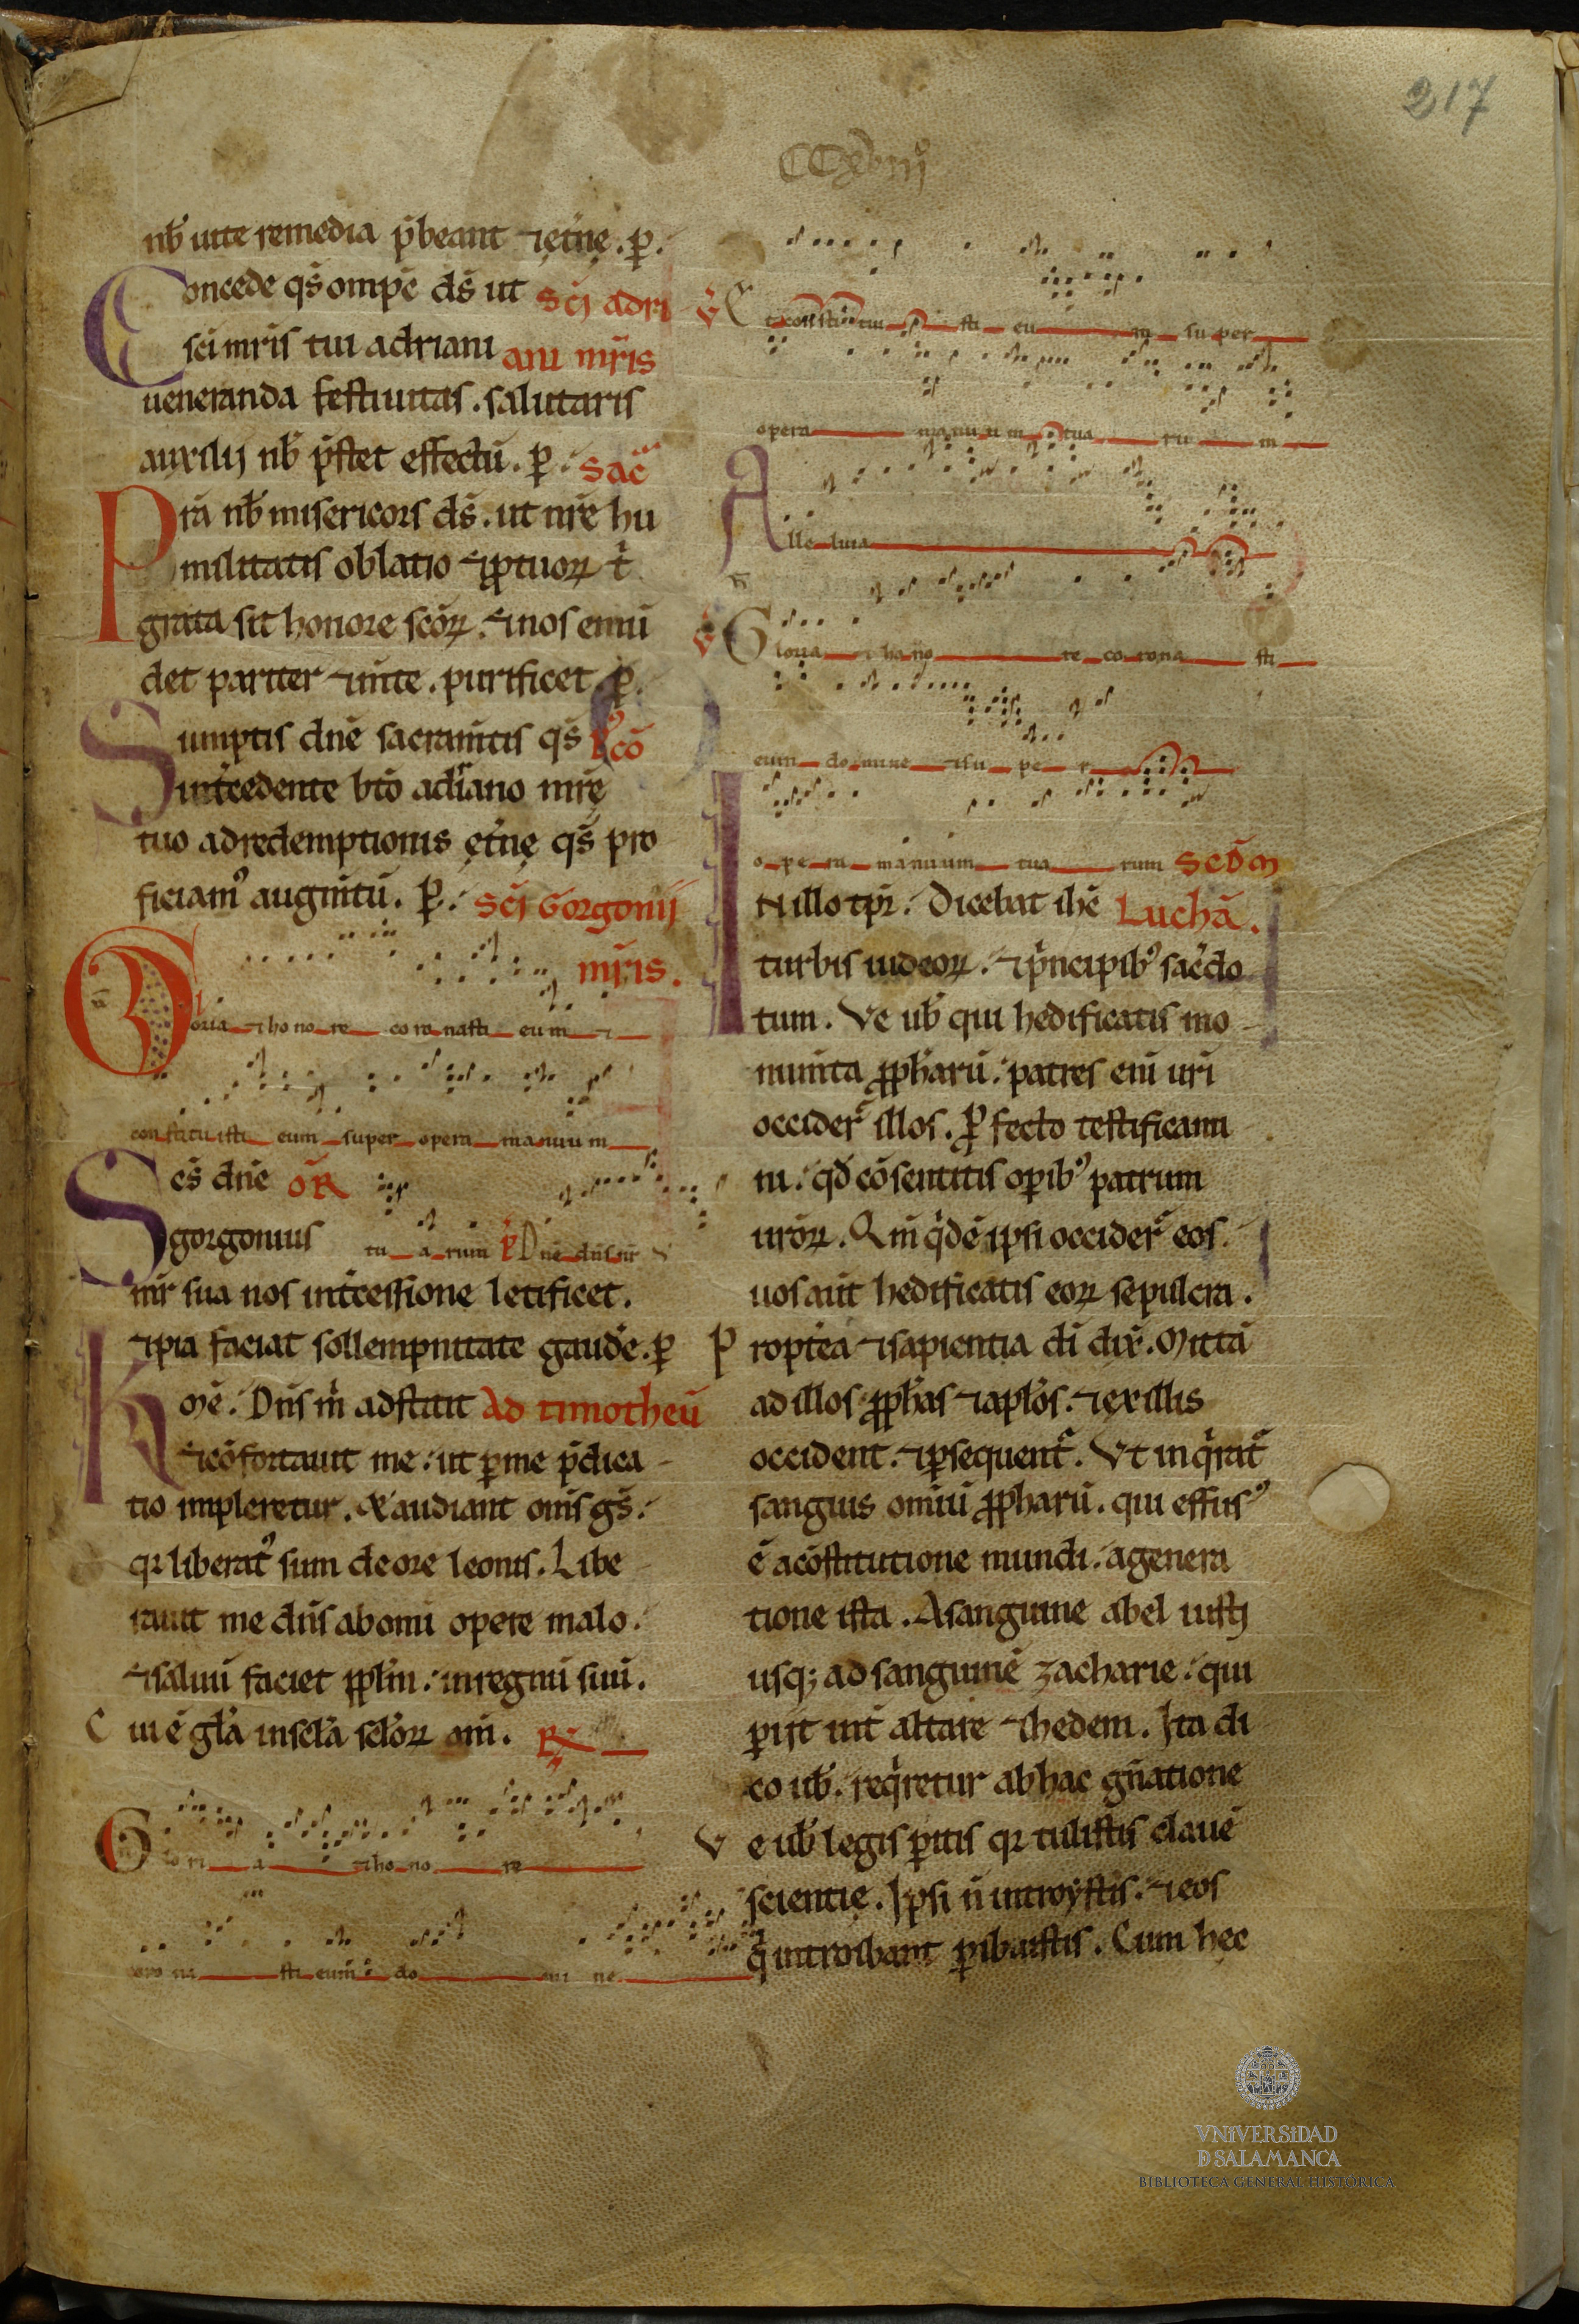 217
CCXVIIIº
nƀ uite remedia p̄beant ⁊ et̄nę. ꝑ.
Concede qs̄ omp̄e ds̄ ut Sc̄i adri
sc̄i mr̄is tui adriani ani mr̄is
ueneranda festiuitas. salutaris
auxilij nƀ p̄stet effectū. ꝑ. Sac̄
Prā nƀ misericors ds̄. ut nr̄e hu
militatis oblatio ⁊ ꝓ tuoꝝ t̄
grata sit honore sc̄oꝝ. ⁊ nos emū
det pariter ⁊ mīte. purificet. ꝑ.
Sumptis dn̄e sacram̄tis qs̄ P̄ꝯcō
int̄cedente bt̄o adriano mr̄ę
tuo ad redemptionis ęt̄nę qs̄ pro
ficiamꝰ augm̄tū. ꝑ. Sc̄i Gorgonij
mr̄is.
Gloria ⁊ ho no re co ro nasti eum ⁊
constitu isti eum super opera manuum
Ses̄ dn̄e oR̄
gorgonius tu a rum P̄ Dn̄e dn̄s nr̄
mr̄ sua nos int̄cessione letificet.
⁊ pia faciat sollempnitate gaudē. ꝑ
Kmē. Dn̄s m̄ adstitit Ad timotheū
⁊ cōfortauit me. ut ꝑ me p̄dica
tio impleretur. & audiant om̄s gs̄.
qꝛ liberatꝰ sum de ore leonis. Libe
rauit me dn̄s ab omi opere malo.
⁊ saluū faciet in regnū suū.
Cui ē gl̄a in scl̄a scl̄oꝝ am̄. R̄
Glo ri a ⁊ ho no re
coro na sti eum do mi ne
V̄ Et consti tui sti eu m su per
opera manuum tua ru m
Alle luia
V̄ Gloria ⁊ ho no re co rona sti
eum do mine ⁊ su pe r
o pe ra manuum tua rum Sed̄m
IN illo tp̄r. Dicebat ih̄c Luchā.
turbis iudeoꝝ. ⁊ p̄ncipibꝰ sac̄do
tum. Ve uƀ qui hedificatis mo
num̄ta ꝓph̄arū. patres eni uri
occider̄ illos. ꝓfecto testificami
ni. qd̄ cōsentitis oꝑibꝰ patrum
uroꝝ. Qm̄ qͥdē ipsi occider̄ eos.
uos aut̄ hedificatis eoꝝ sepulcra.
Propt̄ea ⁊ sapientia dī dix̄. Mittā
ad illos ꝓph̄as ⁊ apl̄os. ⁊ ex illis
occident. ⁊ ꝑsequent̄. Vt inqͥrat̄
sanguis omiū ꝓpharū. qui effusꝰ
ē a cōstitutione mundi. a genera
tione ista. A sanguine abel iusti
usq; ad sanguinē zacharie. qui
ꝑijt int̄ altare ⁊ hedem. Ita di
co uƀ. reqͥretur ab hac gn̄atione
Ve uƀ legis ꝑitis qꝛ tulistis clauē
scientię. Ipsi n̄ introystis. ⁊ eos
qͥ introibant ꝓibuistis. Cum hęc
VNIVERSIDAD
D SALAMANCA
BIBLIOTECA GENERAL HISTÓRICA